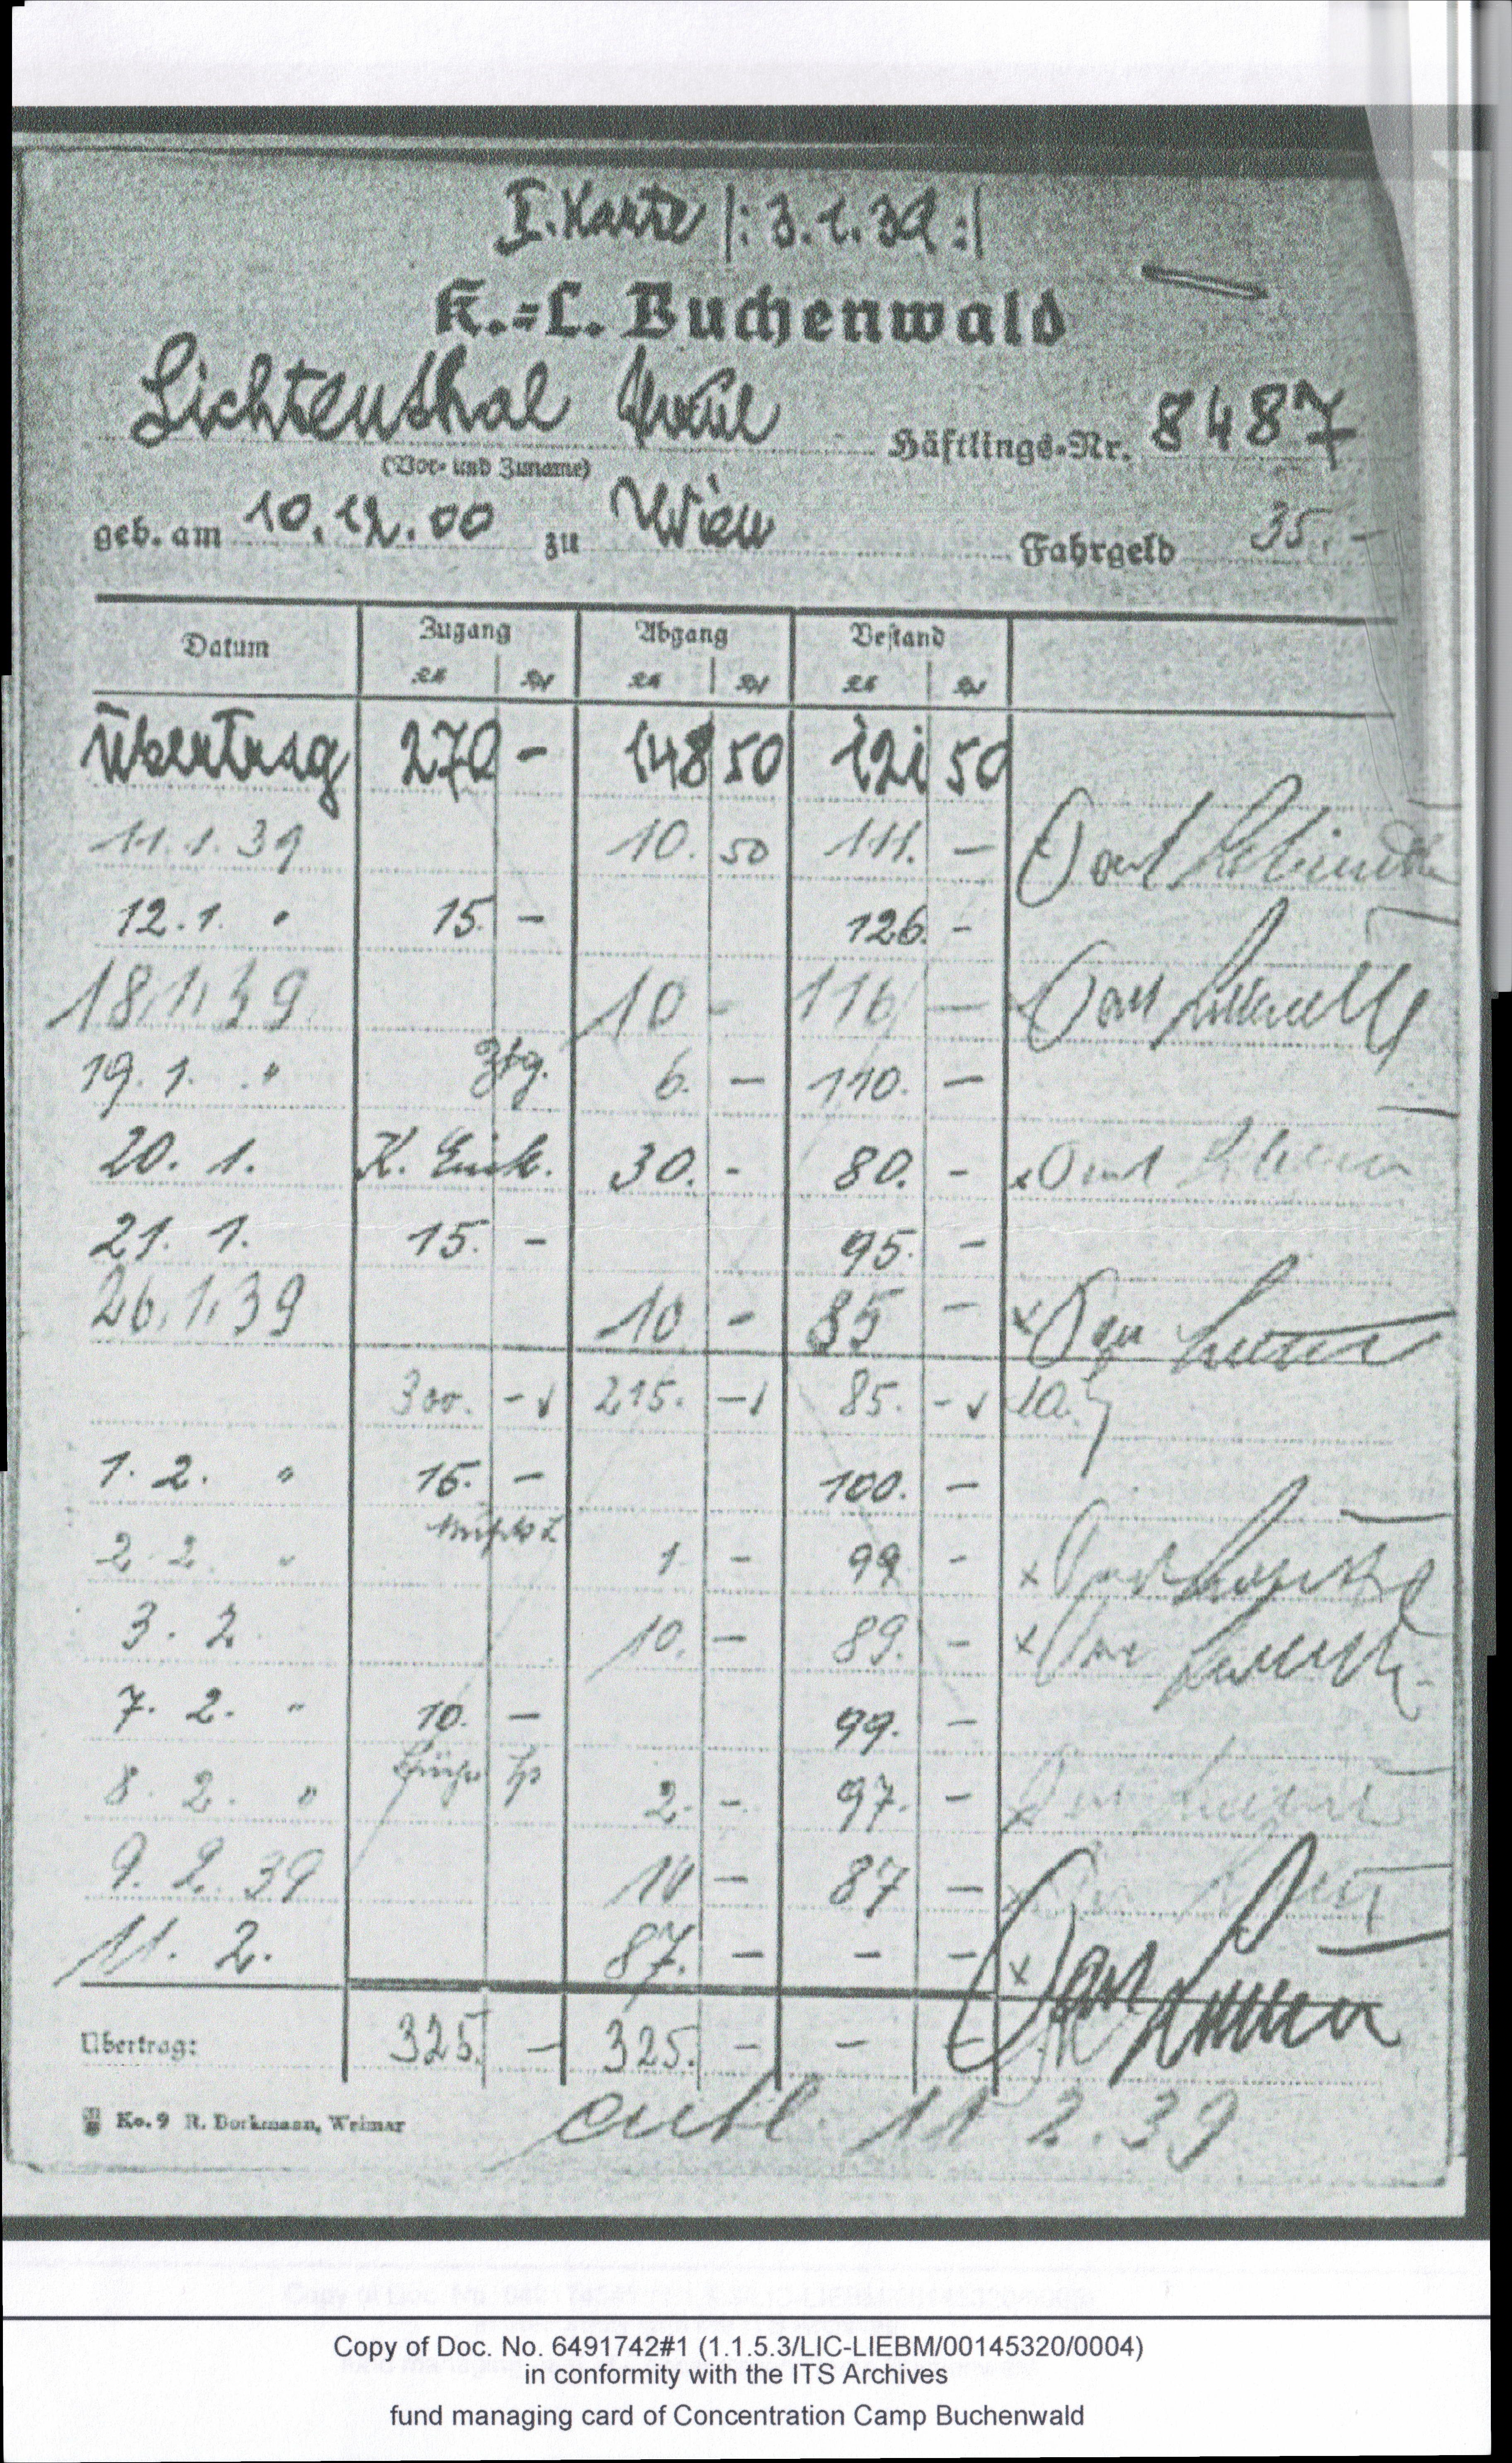 I. Karte |: 3.1.39 :|
K.=L. Buchenwald
Lichtenthal Häftlings-Nr. 8487
(Vor- und Zuname)
geb. am 10.12.00 zu Wien Fahrgeld 35.-
Datum Zugang Abgang Bestand
Übertrag 270 - 148 50 121 50
11.1.39 10. 50 111. -
12.1. " 15. - 126. -
18.1.39 10 - 116 -
19.1. " Ztg. 6. - 110. -
20. 1. K. Eink. 30. - 80. -
21. 1. 15. - 95. -
26.1.39 10 - 85 -
300. - 215. - 85. -
1. 2. " 15. - 100. -
2 2. " 1 - 99 -
3. 2. 10. - 89. -
7. 2. " 10. - 99. -
8. 2. " 2. - 97. -
9. 2. 39 10 - 87 -
11. 2. 87. - - -
Übertrag: 325. - 325. - - -
Ko. 9 R. Borkmann, Weimar
entl. 11 2.39
Copy of Doc. No. 6491742#1 (1.1.5.3/LIC-LIEBM/00145320/0004)
in conformity with the ITS Archives
fund managing card of Concentration Camp Buchenwald